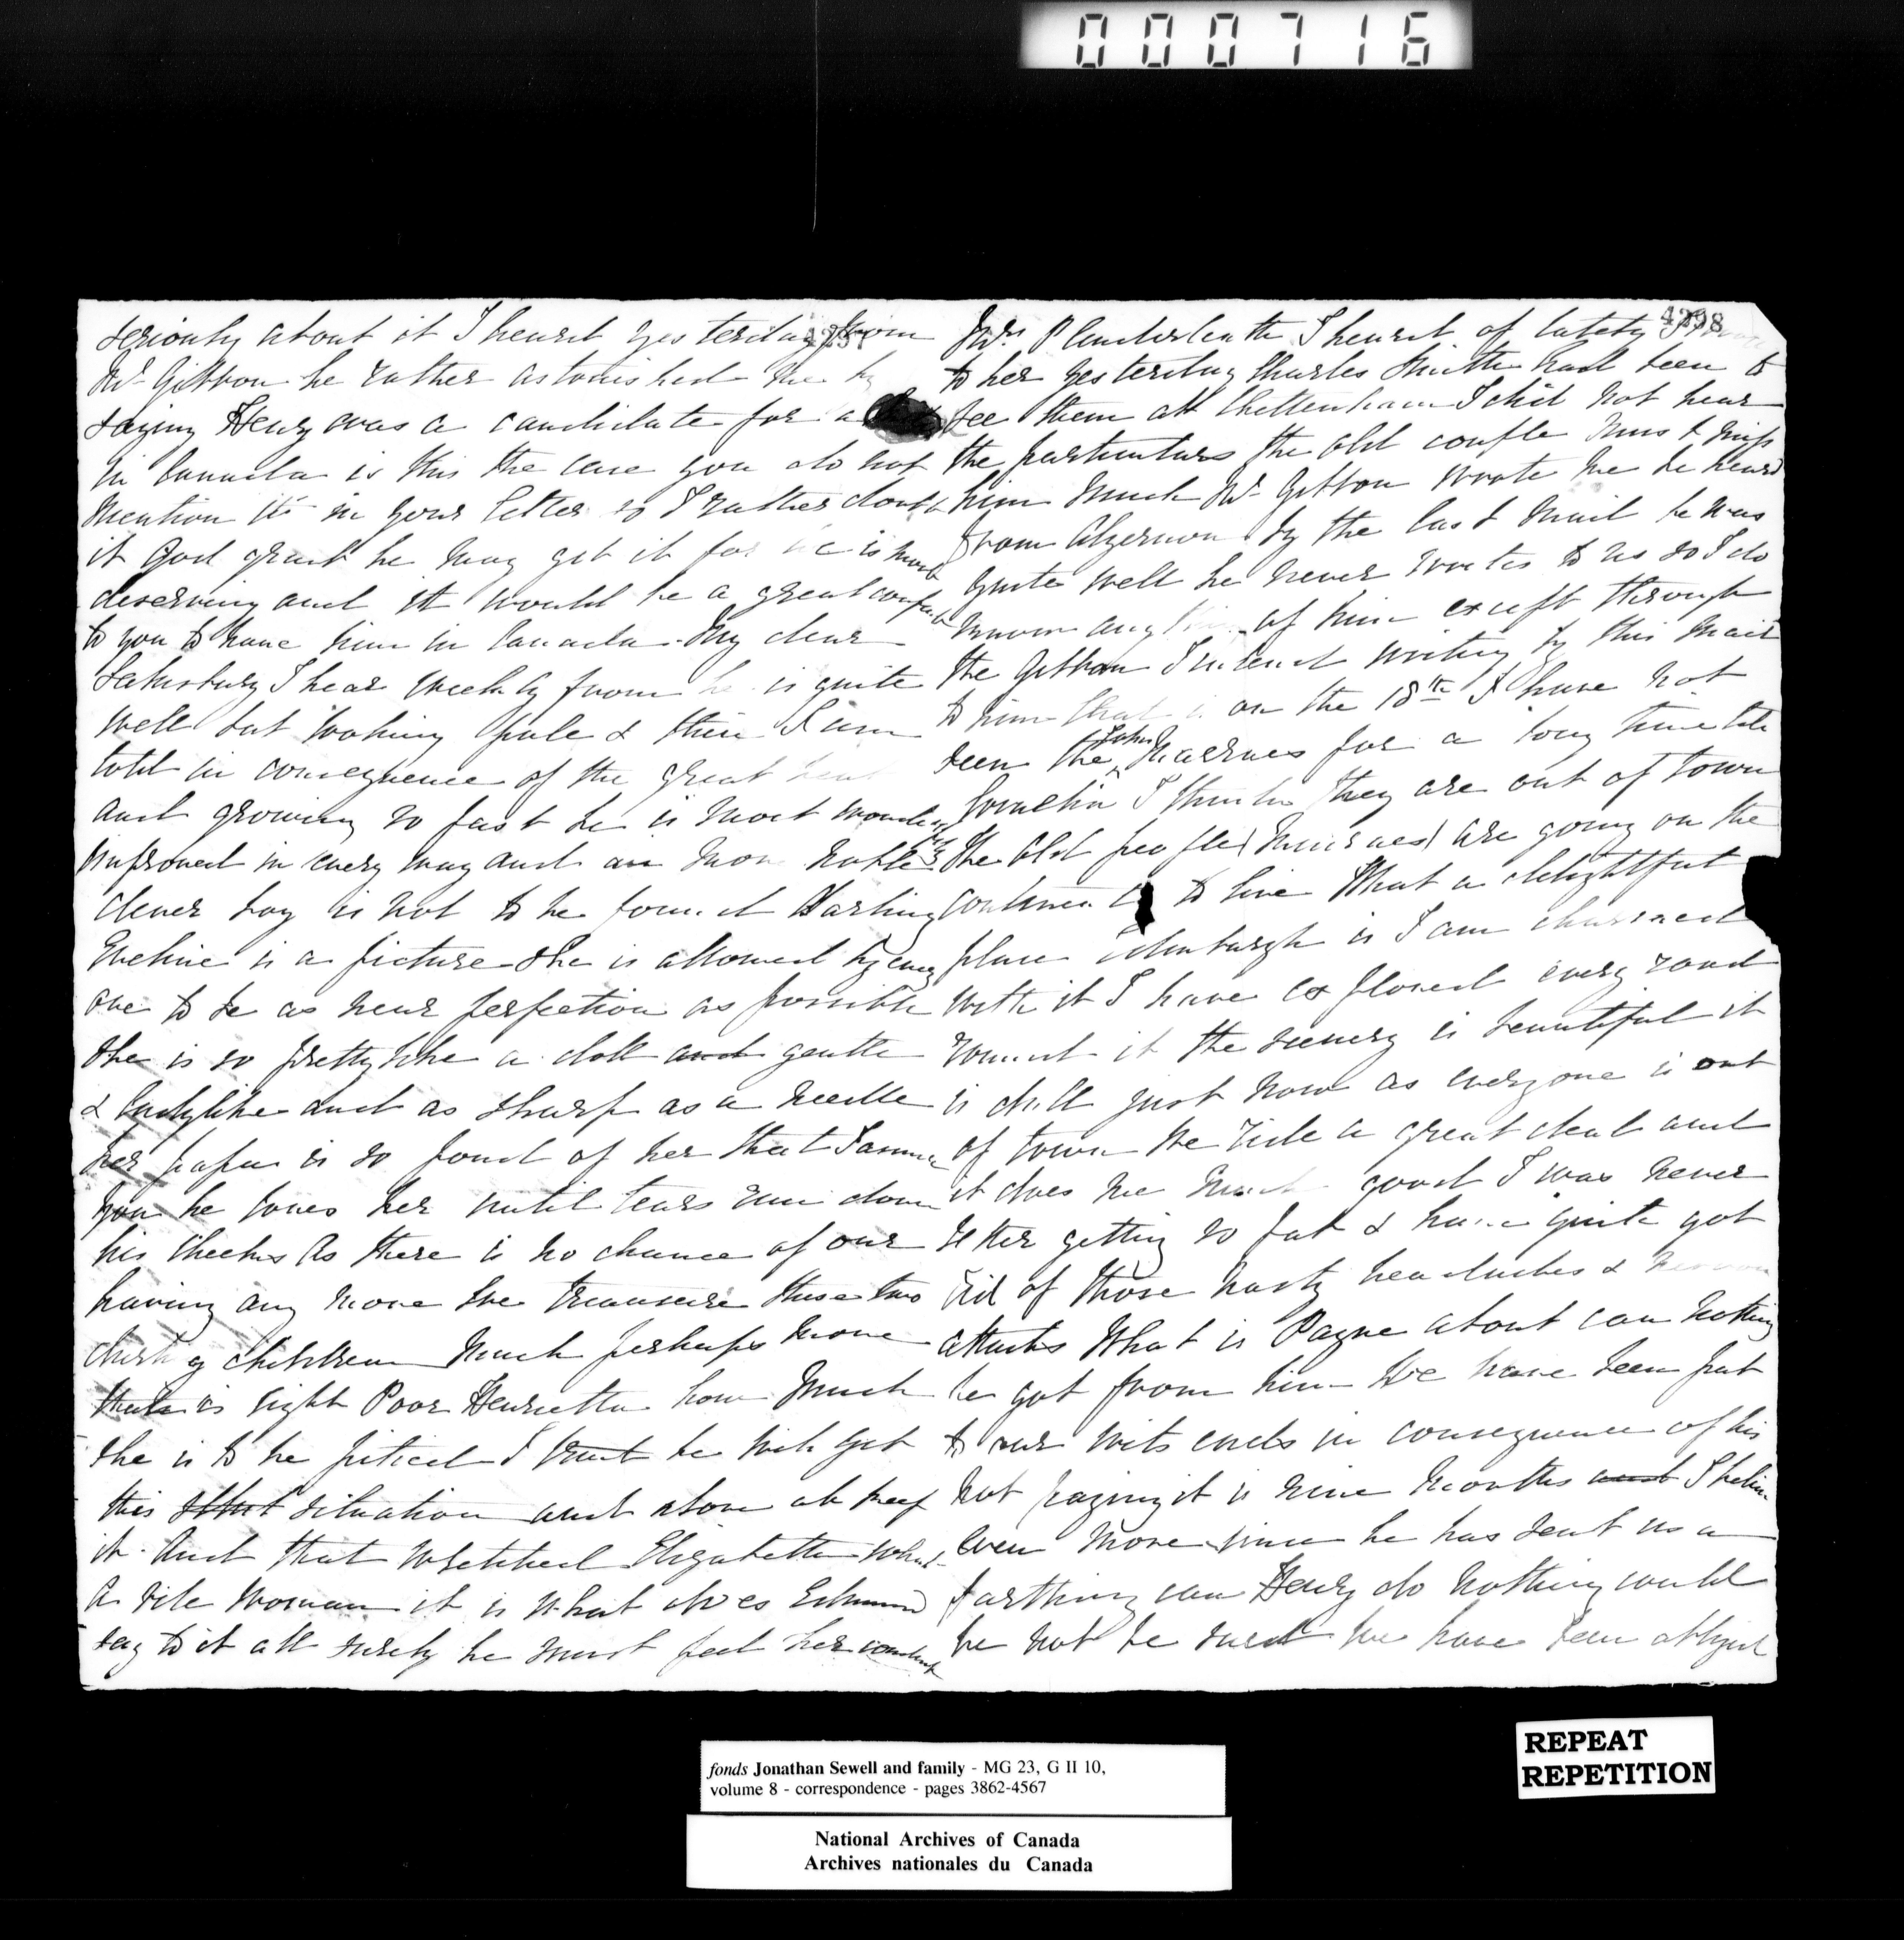 000716
4297
seriously about it I heard yesterday from
Mr Gibbon he rather astonished me by
saying Henry was a candidate for a
in Canada is this the case you do not
mention it in your letter so I rather doubt
it God grant he may get it for he is most
deserving and it would be a great comfort
to you to have him in Canada. My dear
Salusbury I hear weekly from he is quite
well but looking pale & thin I am
told in consequence of the great heat
and growing so fast he is most wonderfully
improved in every way and a more noble &
clever boy is not to be found Darling
Eveline is a picture she is allowed by every
one to be as near perfection as possible
she is so pretty like a doll and gentle
& ladylike and as sharp as a needle
her papa is so fond of her that I assure
you he loves her until tears run down
his cheeks As there is no chance of our
having any more we treasure these two
children much perhaps more
than is right Poor Henrietta how much
she is to be pitied I trust he will get
this situation and above all keep
it. And that wretched Elizabeth what
a vile woman it is what does Edmund
say to it all surely he must feel her conduct
4298
Mrs Plenderleath I heard of lately I
to her yesterday Charles Smith had been to
see them at Cheltenham I did not hear
the particulars the old couple must miss
him much Mr Gibbon wrote me he heard
from Algernon by the last mail he was
quite well he never writes to us so I do
of him except through
the Gibbon I intend writing by this mail
to him that is on the 18th I have not
seen the John for a long time
I think they are out of town
The old people are going on the
continent to live What a delightful
place Edinburgh is I am charmed
with it I have explored every road
round it the scenery is beautiful it
is dull just now as everyone is out
of town We ride a great deal and
it does me much good I was never
better getting so fat & have quite got
rid of those nasty headaches &
attacks What is Payne about can nothing
be got from him We have been put
to our wits ends in consequence of his
not paying it is nine months and I believe
even more since he has sent us a
farthing can Henry do nothing could
he not be sued we have been obliged
fonds Jonathan Sewell and family - MG 23, G II 10,
volume 8 - correspondence - pages 3862-4567
National Archives of Canada
Archives nationales du Canada
REPEAT
REPETITION